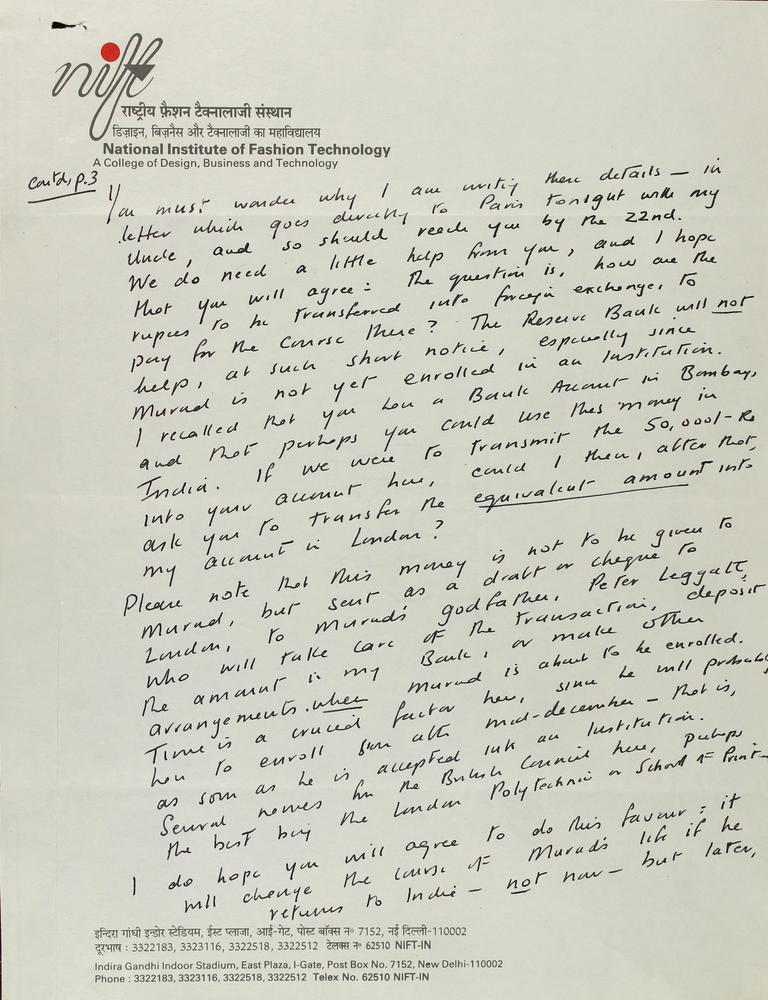 nift
राष्ट्रीय फ़ैशन टैक्नालाजी संस्थान
डिज़ाइन, बिज़नैस और टैक्नालाजी का महाविद्यालय
National Institute of Fashion Technology
A College of Design, Business and Technology
Contd, p.3
You must wonder why I am writing these details — in
letter which goes directly to Paris tonight with my
Uncle, and so should reach you by the 22nd.
We do need a little help from you, and I hope
that you will agree: the question is, how are the
rupees to be transferred into foreign exchange, to
pay for the course there? The Reserve Bank will not
help, at such short notice, especially since
Murad is not yet enrolled in an Institution.
I recalled that you have a Bank Account in Bombay,
and that perhaps you could use this money in
India. If we were to transmit the 50,000/- Rs
into your account here, could I then, after that,
ask you to transfer the equivalent amount into
my account in London?
Please note that this money is not to be given to
Murad, but sent as a draft or cheque to
London, to Murad's godfather, Peter Leggatt,
who will take care of the transaction, deposit
the amount in my Bank, or make other
arrangements when Murad is about to be enrolled.
Time is a crucial factor here, since he will probably
have to enroll soon after mid-december — that is,
as soon as he is accepted into an Institution.
Several names from the British Council here, perhaps
the best being the London Polytechnic or School of Print-
I do hope you will agree to do this favour: it
will change the course of Murad's life if he
returns to India — not now — but later,
इन्दिरा गांधी इन्डोर स्टेडियम, ईस्ट प्लाजा, आई-गेट, पोस्ट बॉक्स न० 7152, नई दिल्ली-110002
दूरभाष : 3322183, 3323116, 3322518, 3322512 टेलक्स न० 62510 NIFT-IN
Indira Gandhi Indoor Stadium, East Plaza, I-Gate, Post Box No. 7152, New Delhi-110002
Phone : 3322183, 3323116, 3322518, 3322512 Telex No. 62510 NIFT-IN